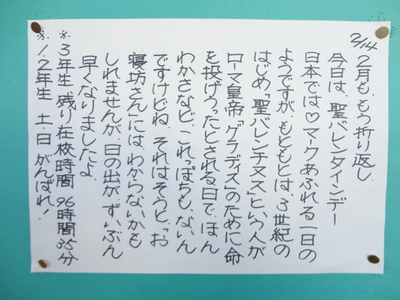 2/14
2月も、もう折り返し
今日は、聖バレンタインデー
日本では♡マークあふれる一日の
ようですが、もともとは、3世紀の
はじめ、"聖バレンチヌス"という人が
ローマ皇帝「グラディス」のために命
を投げうったとされる日で、ほん
わかさなど、これっぽちも、ないん
ですけどね。それはそうと、「お
寝坊さん」には、わからないかも
しれませんが、日の出が、ずいぶん
早くなりましたよ。
※3年生 残り在校時間 96時間35分
※1、2年生 土、日 がんばれ!